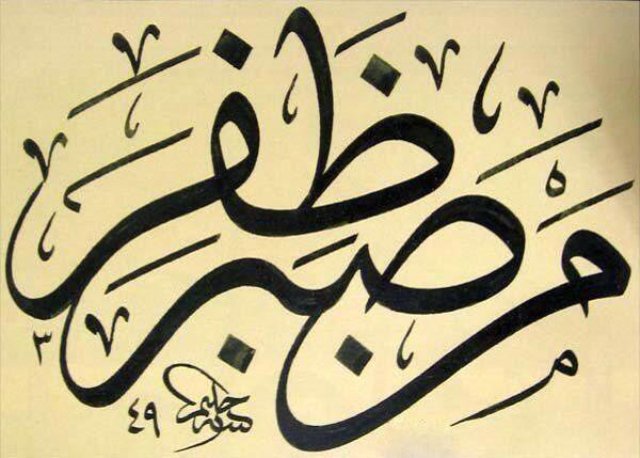 من صبر ظفر
حليم
٤٩